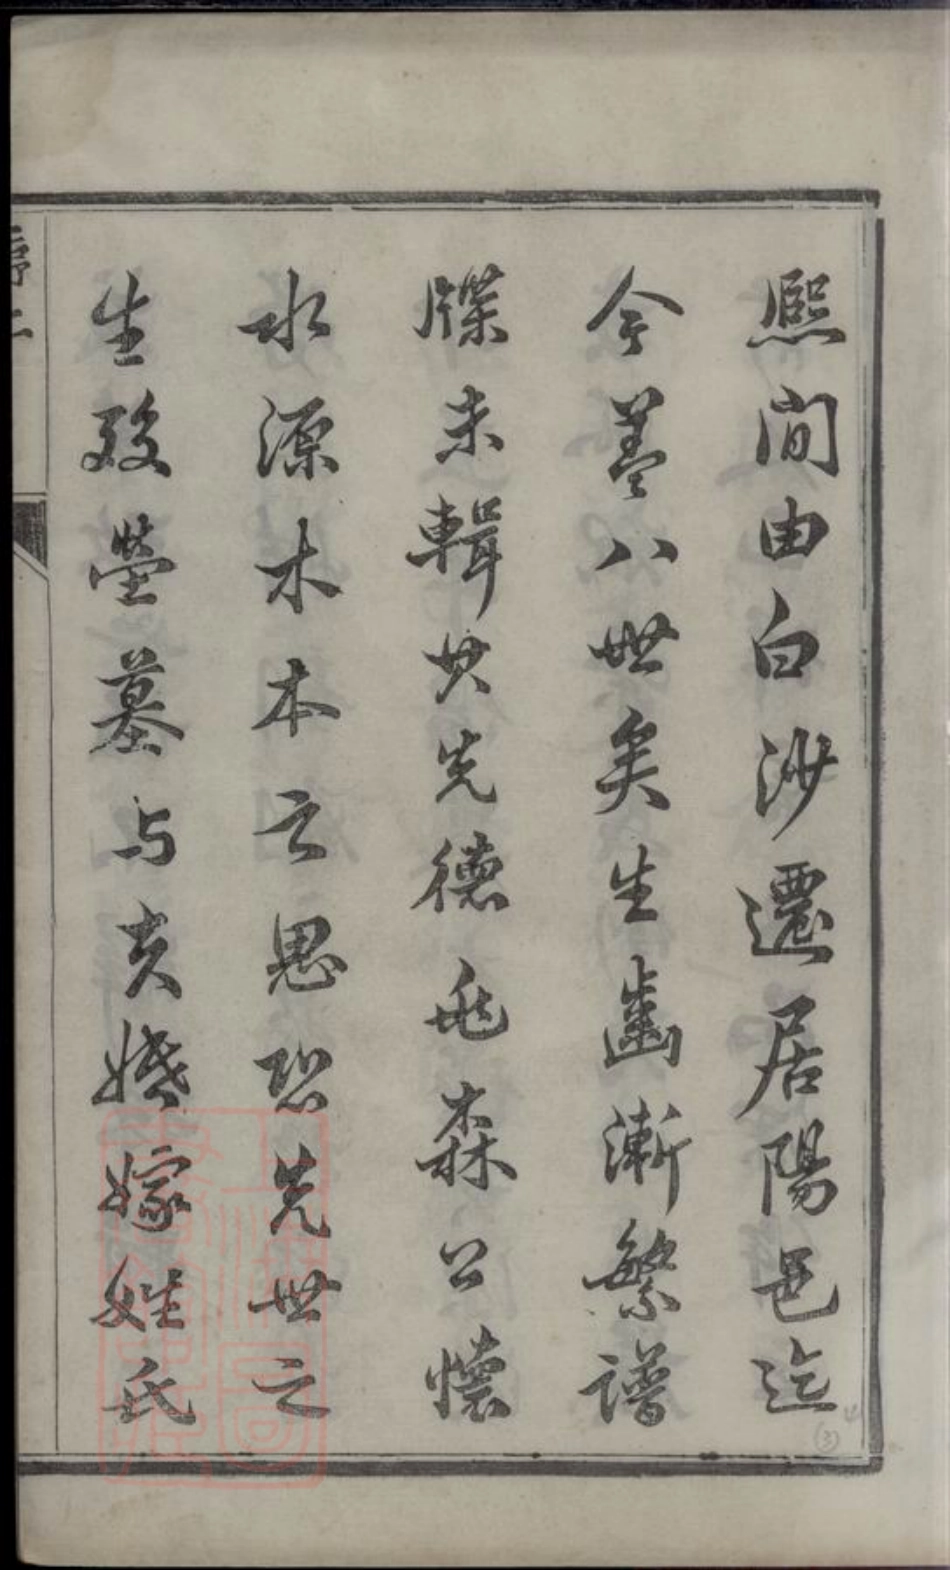 熙間由白沙遷居陽邑迄
今蓋八世矣生齒漸繁譜
牒未輯其先德兆森公懷
水源木本之思恐先世之
生歿塋墓与夫婚嫁姓氏
序二